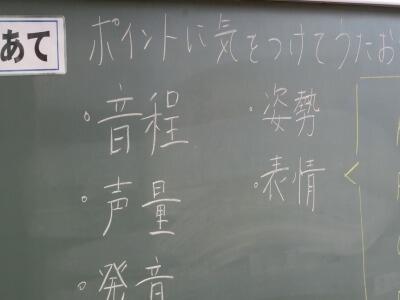 あて
ポイントに気をつけてうたお
・音程
・声量
・発音
・姿勢
・表情